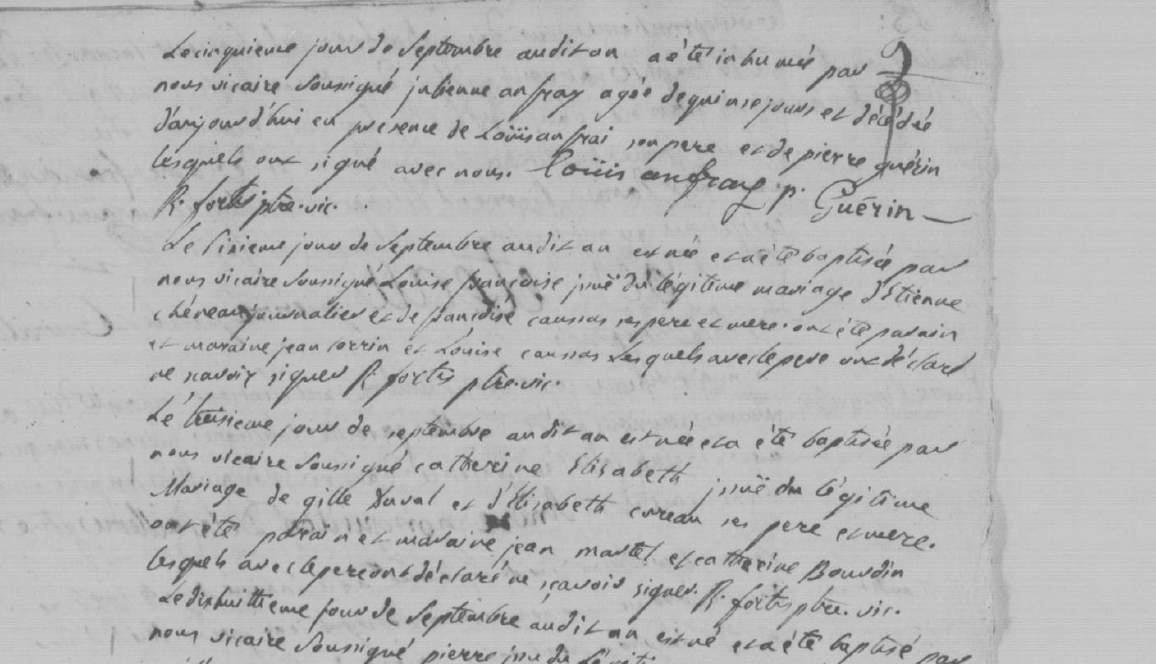 Le cinquieme jour de Septembre audit an a été inhumée par
nous vicaire soussigné julienne anfray agée de quinse jours et décédée
d'aujourd'hui en presence de Loüis anfrai son pere et de pierre guérin
lesquels ont signé avec nous. Loüis anfray p. Guérin
R. fortis ptre. vic.
Le sisieme jour de Septembre audit an est née et a été baptisée par
nous vicaire soussigné Louise françoise issuë du légitime mariage d'Etienne
journalier et de françoise ses pere et mere. ont été parain
et maraine jean et Loüise Lesquels avec le pere ont déclaré
ne sçavoir signer R. fortis ptre. vic.
Le treisieme jour de septembre audit an est née et a été baptisée par
nous vicaire soussigné catherine Elisabeth issuë du légitime
Mariage de gille Duval et d'Elisabeth ses pere et mere.
ont été parain et maraine jean martel et catherine Bourdin
lesquels avec le pere ont déclaré ne sçavoir signer. R. fortis ptre. vic.
Le dishuittieme jour de Septembre audit an est né et a été baptisé par
nous vicaire soussigné pierre issu du